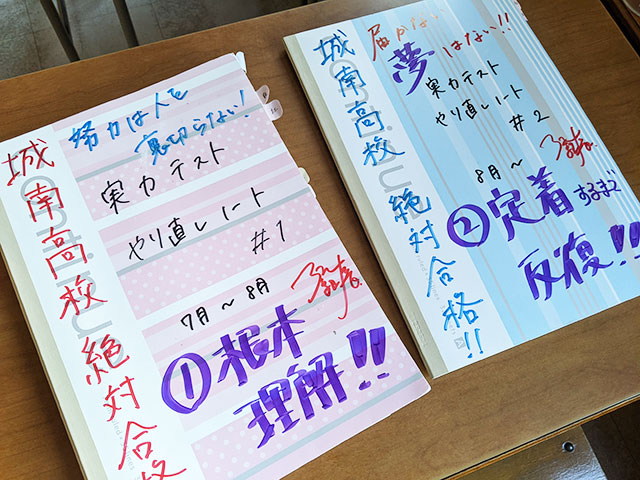 城南高校 絶対合格
努力は人を
裏切らない!
実力テスト
やり直しノート
#1
7月～8月
①根本
理解!!
城南高校 絶対合格!!
届かない
夢はない!!
実力テスト
やり直しノート
#2
8月～
②定着するまで
反復!!